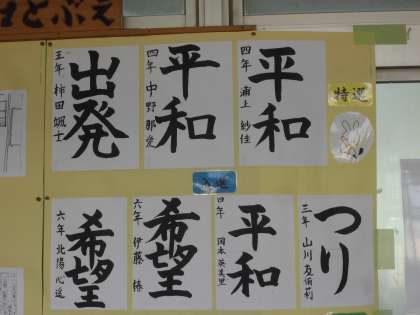 とどぶえ
四年 浦上 紗佳
平和
特選
四年 中野 那覚
平和
五年 柿田 颯士
出発
入選
三年 山川 友伯莉
つり
四年 岡本 英美里
平和
六年 伊藤 椿
希望
六年 北陽 心遥
希望